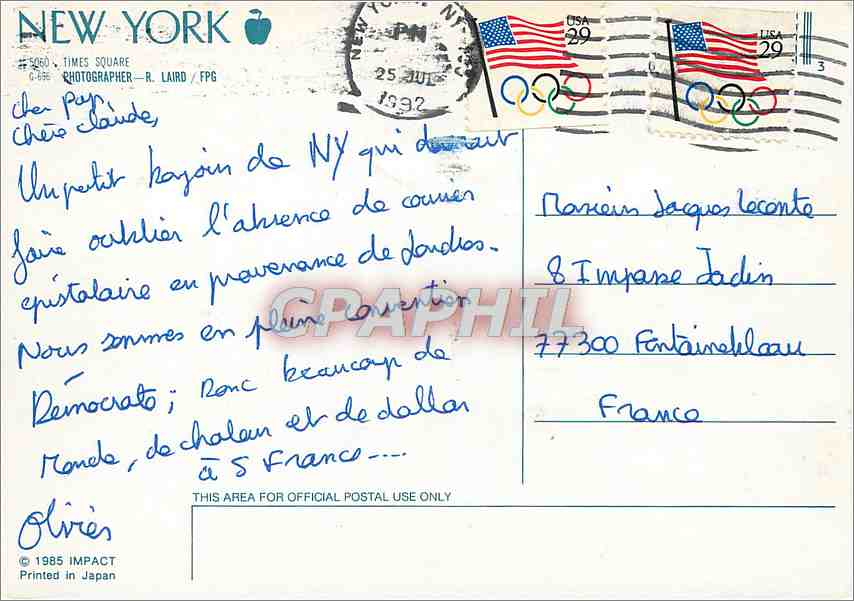 NEW YORK
5060 TIMES SQUARE
G-696 PHOTOGRAPHER—R. LAIRD / FPG
NEW YORK, NY
PM
25 JUL
1992
USA
29
USA
29
3
Cher Papy,
Chère Claude,
Un petit bonjoin de NY qui devrait
faire oublier l'absence de courrier
épistolaire en provenance de Londres.
Nous sommes en pleine convention
Démocrate; Donc beaucoup de
monde, de chaleur et de dollar
à 5 Francs.....
Olivier
CPAPHIL
Monsieur Jacques Leconte
8 Impasse Jadin
77300 Fontainebleau
France
THIS AREA FOR OFFICIAL POSTAL USE ONLY
© 1985 IMPACT
Printed in Japan